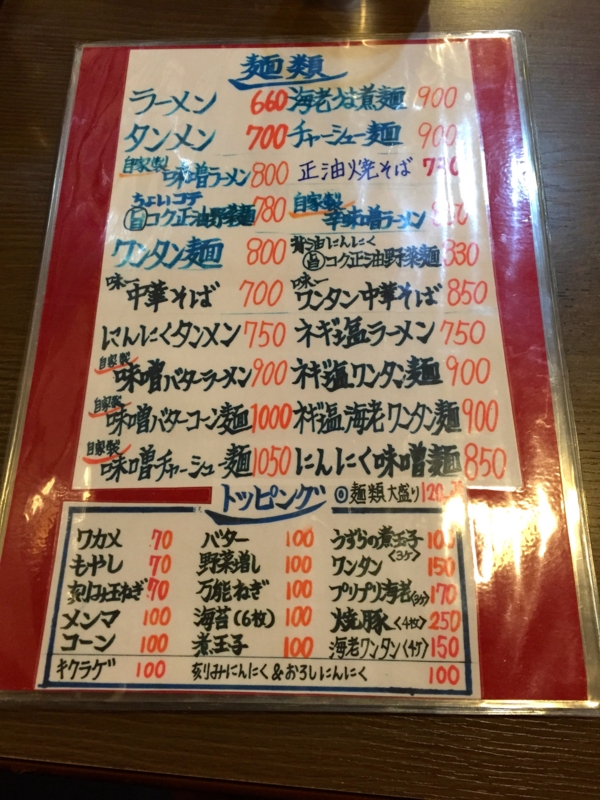 麺類
ラーメン 660 海老うま煮麺 900
タンメン 700 チャーシュー麺 900
自家製 味噌ラーメン 800 正油焼そば
ちょいコテ 旨コク正油野菜麺 780 自家製 辛味噌ラーメン
ワンタン麺 800 背油にんにく 旨コク正油野菜麺 830
味一 中華そば 700 味一 ワンタン中華そば 850
にんにくタンメン 750 ネギ塩ラーメン 750
自家製 味噌バターラーメン 900 ネギ塩ワンタン麺 900
自家製 味噌バターコーン麺 1000 ネギ塩海老ワンタン麺 900
自家製 味噌チャーシュー麺 1050 にんにく味噌麺 850
トッピング ◎麺類大盛り 120
ワカメ 70 バター 100 うずらの煮玉子〈3ヶ〉 100
もやし 70 野菜増し 100 ワンタン 150
刻み玉ねぎ 70 万能ねぎ 100 プリプリ海老〈3ヶ〉 170
メンマ 100 海苔(6枚) 100 焼豚〈4枚〉 250
コーン 100 煮玉子 100 海老ワンタン〈4ヶ〉 150
キクラゲ 100 刻みにんにく&おろしにんにく 100